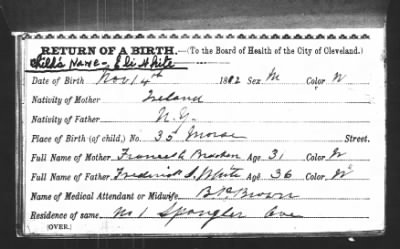 RETURN OF A BIRTH.—(To the Board of Health of the City of Cleveland.)
Child's Name - Eli White
Date of Birth Nov 14th 1882 Sex, M Color W
Nativity of Mother Ireland
Nativity of Father N.Y.
Place of Birth (of child,) No. 35 Morse Street.
Full Name of Mother Frances A. Bracken Age 31 Color W
Full Name of Father Frederick S. White Age 36 Color W
Name of Medical Attendant or Midwife, Brown
Residence of same No 1 Spangler Ave
(OVER.)